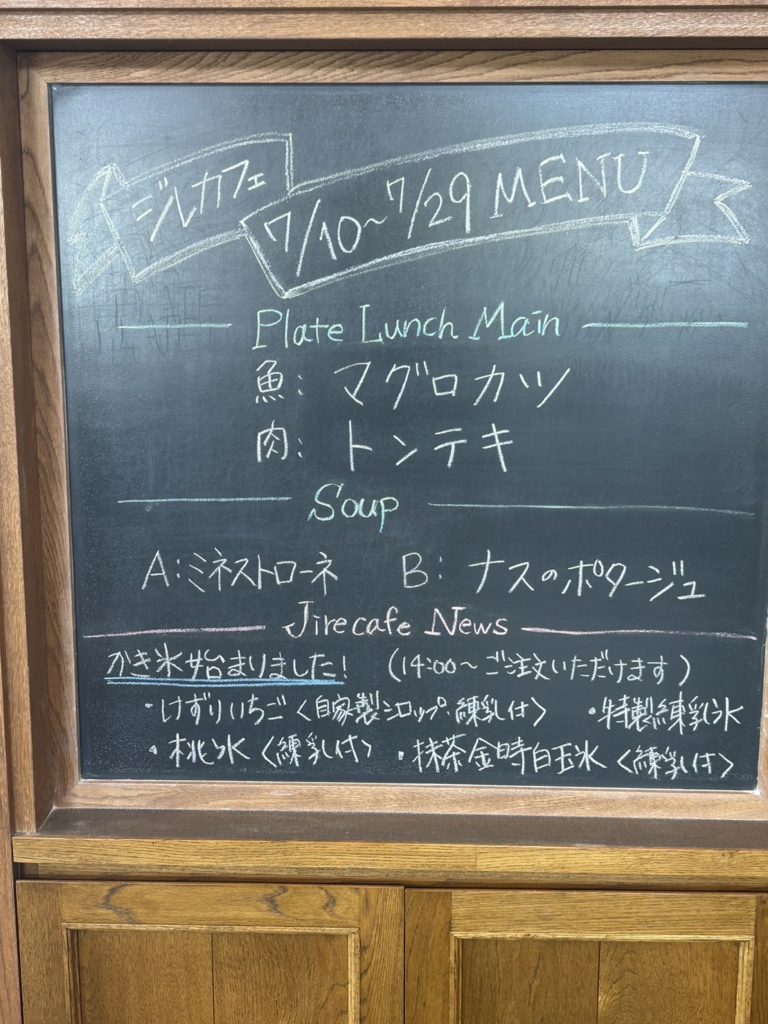 ジルカフェ 7/10~7/29 MENU
Plate Lunch Main
魚: マグロカツ
肉: トンテキ
Soup
A:ミネストローネ B: ナスのポタージュ
Jirecafe News
かき氷始まりました! (14:00~ご注文いただけます)
・けずりいちご〈自家製シロップ・練乳付〉 ・特製練乳氷
・桃氷〈練乳付〉 ・抹茶金時白玉氷〈練乳付〉